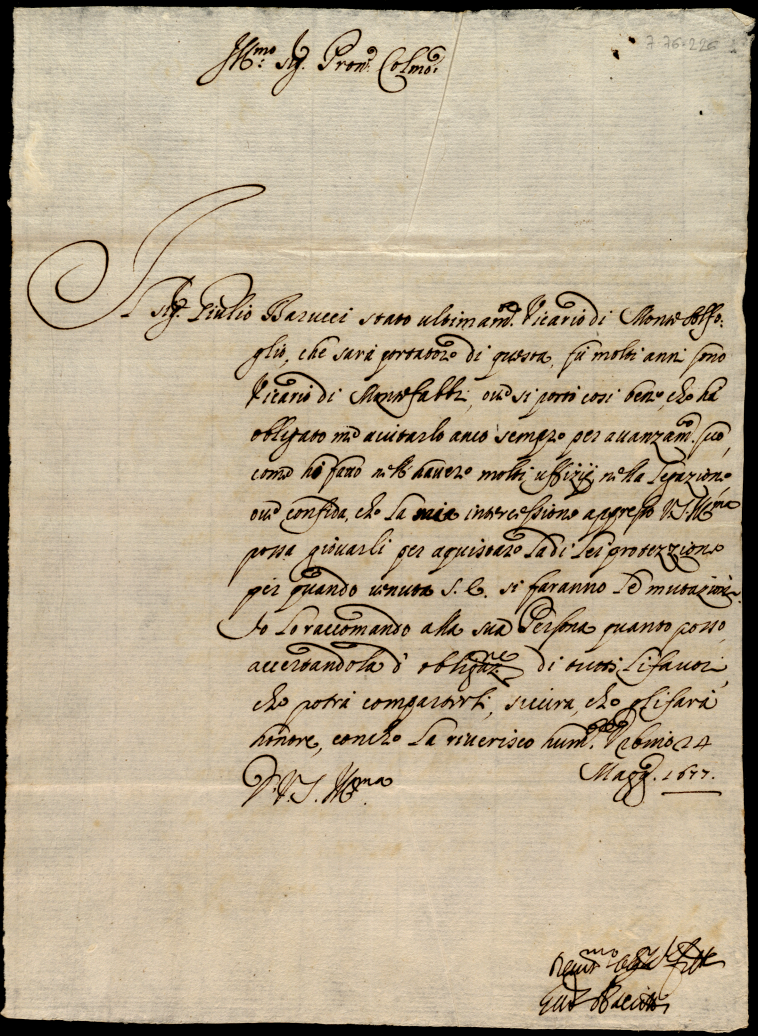 7-76-226
Ill.mo Sig. Pron. Colmo:
Il Sig. Giulio Barucci stato ultimam. Vicario di Monte
glio, che sarà portatore di questa, fù molti anni sono
Vicario di Montefabbri, oue si portò così bene, che hà
obligato me aiutarlo anco sempre per auanzam. suo,
come hò fatto nell' hauere molti uffizij nella Legazione
oue confida, che la mia intercessione appresso V.S. Ill.ma
possa giouarli per aquistare la di Lei protezzione
per quando uenuta S. E. si faranno le mutazioni.
Io lo raccomando alla sua Persona quanto posso
accertandola d' obligaz.ne di tutti li fauori,
che potrà compartirli, sicura, che gli farà
honore, con che la riuerisco hum. Vrbino 24
Magg. 1677.
D. V. S. Ill.ma